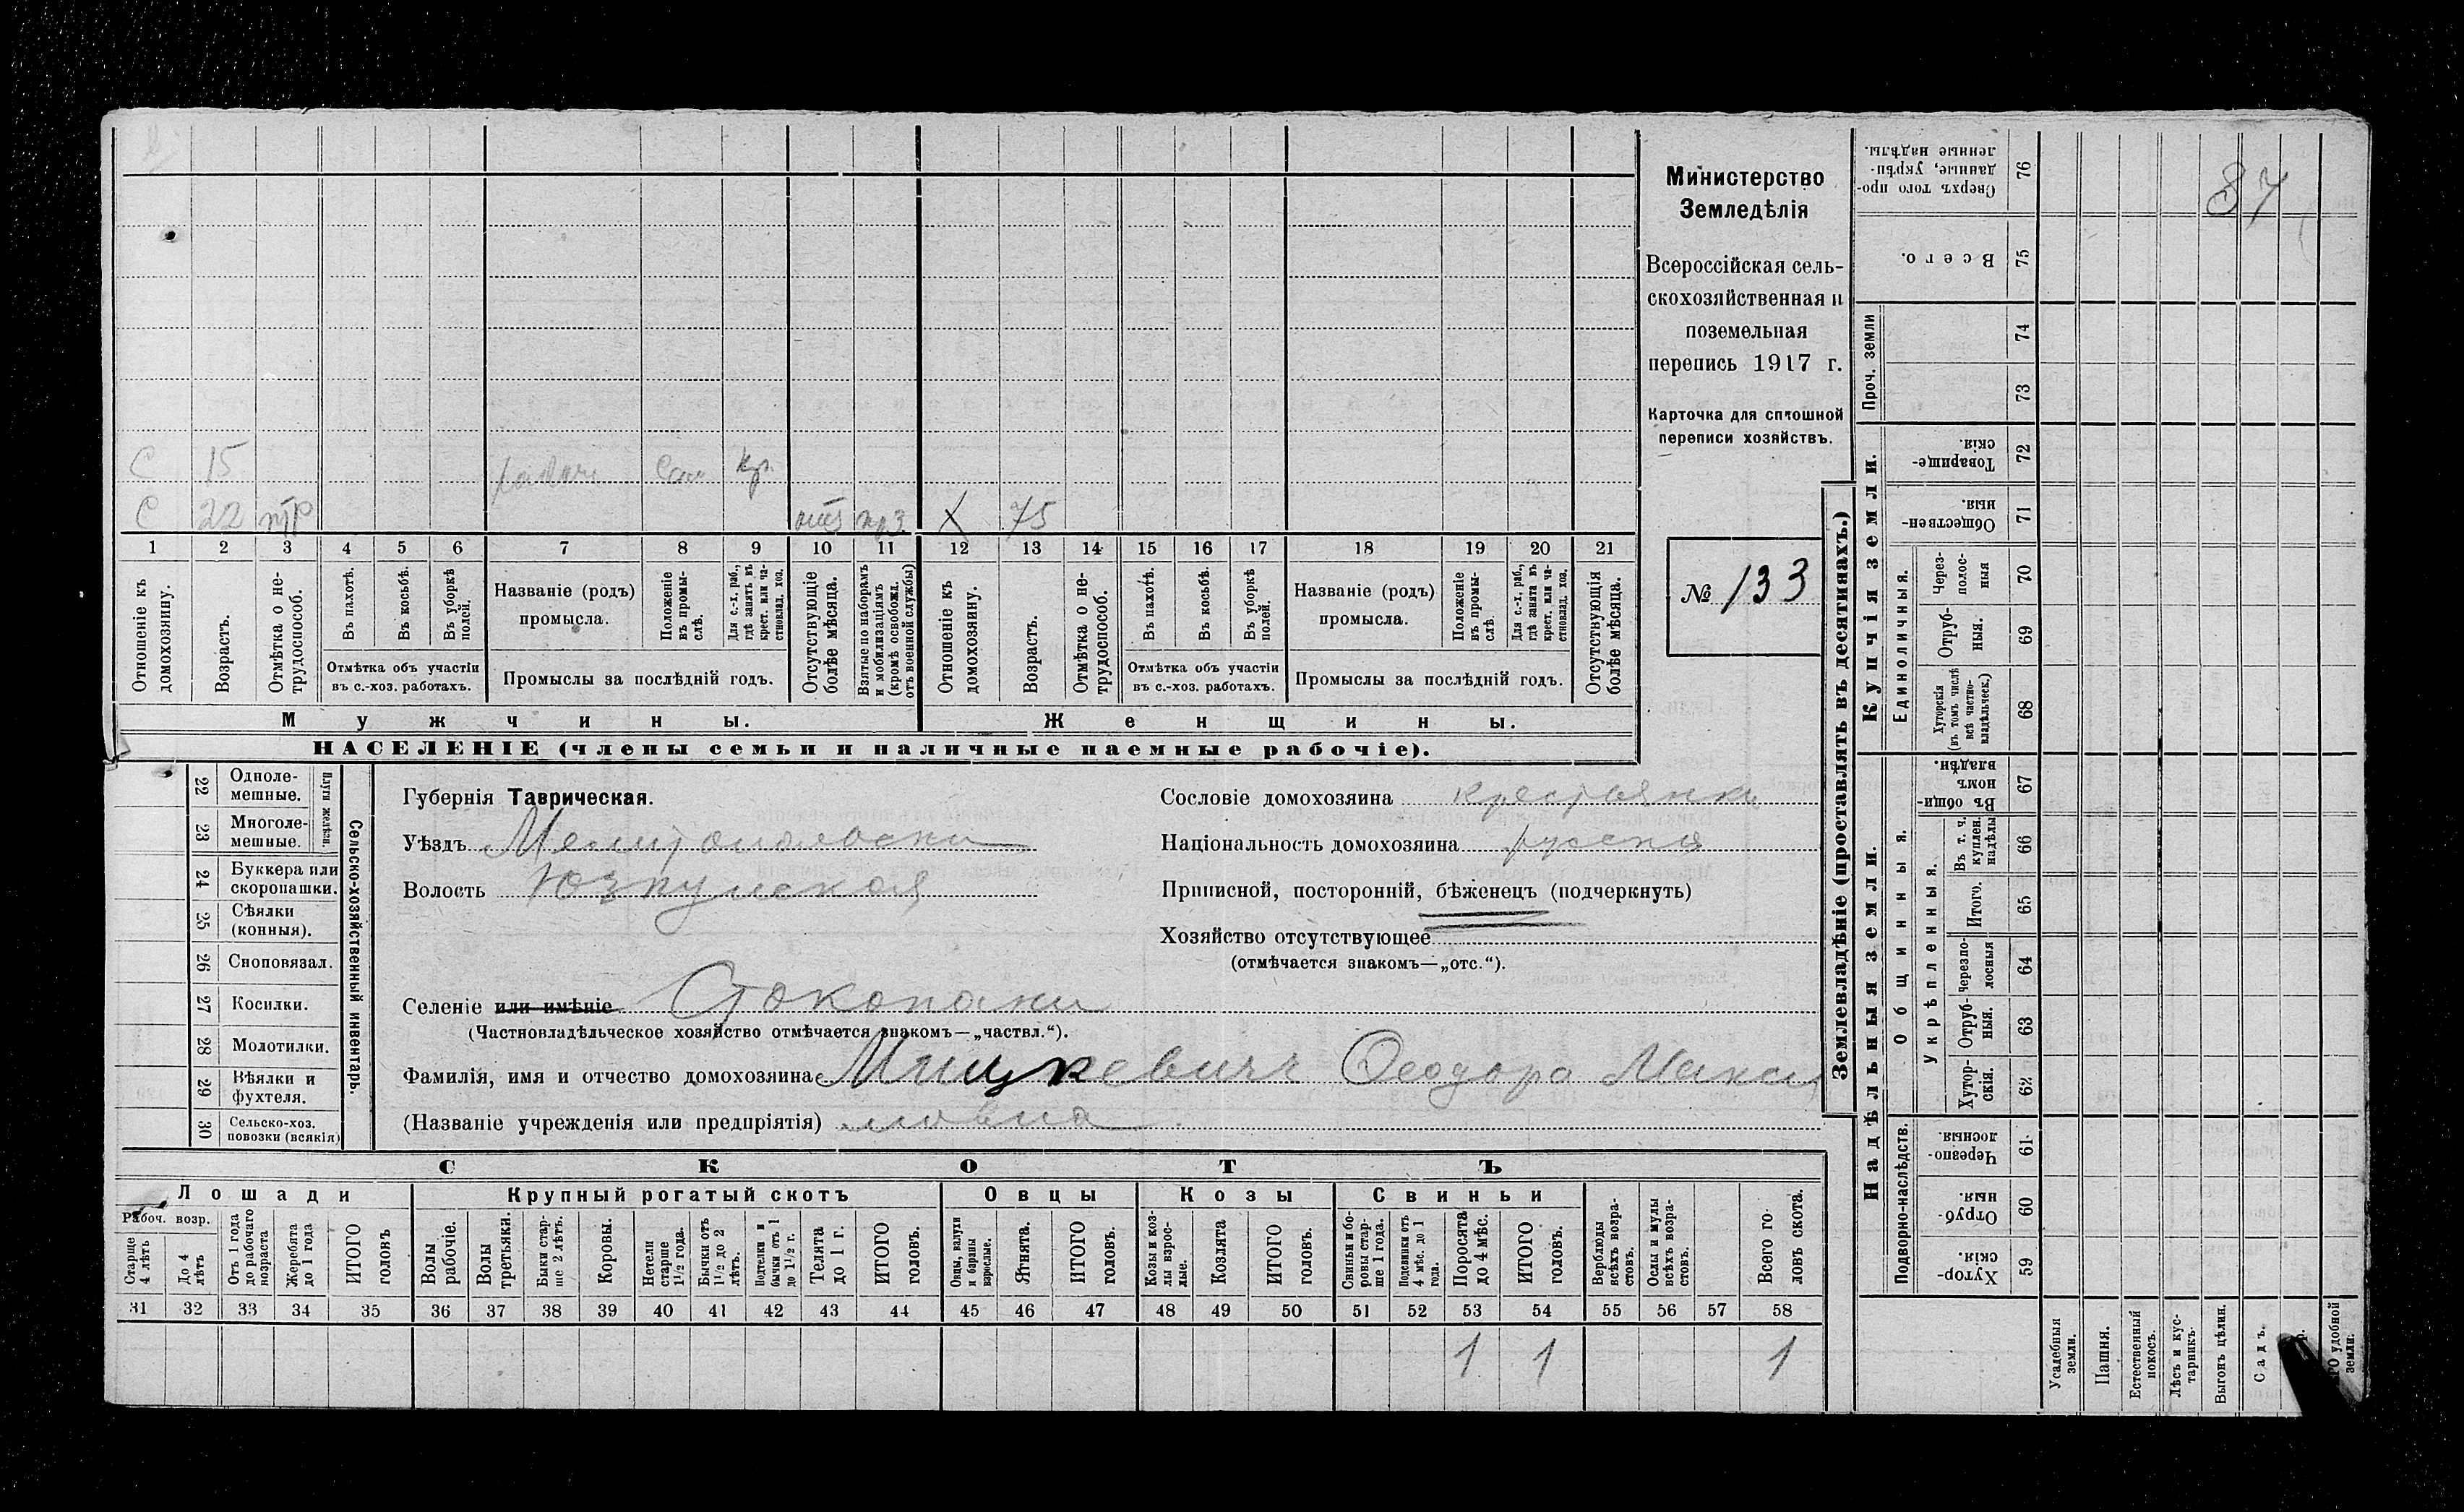 87
Министерство
Земледѣлія
Всероссійская сель-
скохозяйственная и
поземельная
перепись 1917 г.
Карточка для сплошной
переписи хозяйствъ.
№ 133
С 15 Кр.
С 22 75
1 2 3 4 5 6 7 8 9 10 11 12 13 14 15 16 17 18 19 20 21
Отношеніе къ домохозяину.
Возрастъ.
Отмѣтка о не-трудоспособ.
Въ пахотѣ.
Въ косьбѣ.
Въ уборкѣ полей.
Отмѣтка объ участіи
въ с.-хоз. работахъ.
Названіе (родъ)
промысла.
Положеніе въ промы-слѣ.
Для с.-х. раб., гдѣ занятъ въ крест. или ча-стновлад. хоз.
Промыслы за послѣдній годъ.
Отсутствующіе болѣе мѣсяца.
Взятые по наборамъ и мобилизаціямъ (кромѣ освобожд. отъ военной службы)
Отношеніе къ домохозяину.
Возрастъ.
Отмѣтка о не-трудоспособ.
Въ пахотѣ.
Въ косьбѣ.
Въ уборкѣ полей.
Отмѣтка объ участіи
въ с.-хоз. работахъ.
Названіе (родъ)
промысла.
Положеніе въ промы-слѣ.
Для с.-х. раб., гдѣ занята въ крест. или ча-стновлад. хоз.
Промыслы за послѣдній годъ.
Отсутствующія болѣе мѣсяца.
Мужчины.
Женщины.
НАСЕЛЕНІЕ (члены семьи и наличные наемные рабочіе).
Сельско-хозяйственный инвентарь.
Плуги желѣзн.
22 Одноле-мешные.
23 Многоле-мешные.
24 Буккера или скоропашки.
25 Сѣялки (конныя).
26 Сноповязал.
27 Косилки.
28 Молотилки.
29 Вѣялки и фухтеля.
30 Сельско-хоз. повозки (всякія)
Губернія Таврическая.
Уѣздъ Мелитопольски
Волость Юзкуйская
Селеніе или имѣніе Стокопани
(Частновладѣльческое хозяйство отмѣчается знакомъ—„частвл.“).
Фамилія, имя и отчество домохозяина Мицкевичъ Феодора Макси
(Названіе учрежденія или предпріятія) мовна
Сословіе домохозяина крестьянка
Національность домохозяина русская
Приписной, посторонній, бѣженецъ (подчеркнуть)
Хозяйство отсутствующее
(отмѣчается знакомъ—„отс.“).
СКОТЪ
Лошади
Рабоч. возр.
Старше 4 лѣтъ
До 4 лѣтъ
Отъ 1 года до рабочаго возраста
Жеребята до 1 года
ИТОГО головъ
Крупный рогатый скотъ
Волы рабочіе.
Волы третьяки.
Быки стар-ше 2 лѣтъ.
Коровы.
Нетели старше 1 1/2 года.
Бычки отъ 1 1/2 до 2 лѣтъ.
Подтелки и бычки отъ 1 до 1 1/2 г.
Телята до 1 г.
ИТОГО головъ.
Овцы
Овцы, валухи и бараны взрослые.
Ягнята.
ИТОГО головъ.
Козы
Козы и коз-лы взрос-лые.
Козлята
ИТОГО головъ.
Свиньи
Свиньи и бо-ровы стар-ше 1 года.
Подсвинки отъ 4 мѣс. до 1 года.
Поросята до 4 мѣс.
ИТОГО головъ.
Верблюды всѣхъ возра-стовъ.
Ослы и мулы всѣхъ возра-стовъ.
Всего го-ловъ скота.
31 32 33 34 35 36 37 38 39 40 41 42 43 44 45 46 47 48 49 50 51 52 53 54 55 56 57 58
1 1 1
Землевладѣніе (проставлять въ десятинахъ.)
Купчія земли.
Надѣльныя земли.
Сверхъ того про-данные, укрѣп-ленные надѣлы. 76
Всего. 75
Проч. земли
74
73
Товарище-скія. 72
Обществен-ныя. 71
Единоличныя.
Через-полос-ныя 70
Отруб-ныя. 69
Хуторскія (въ томъ числѣ всѣ частно-владѣльческ.) 68
Общинныя.
Въ общин-номъ владѣн. 67
Укрѣпленныя.
Въ т. ч. куплен. надѣлы 66
Итого. 65
Черезпо-лосныя 64
Отруб-ныя. 63
Хутор-скія. 62
Подворно-наслѣдств.
Черезпо-лосныя. 61
Отруб-ныя. 60
Хутор-скія. 59
Усадебныя земли.
Пашня.
Естественный покосъ.
Лѣсъ и кус-тарникъ.
Выгонъ цѣлин.
Садъ.
удобной земли.